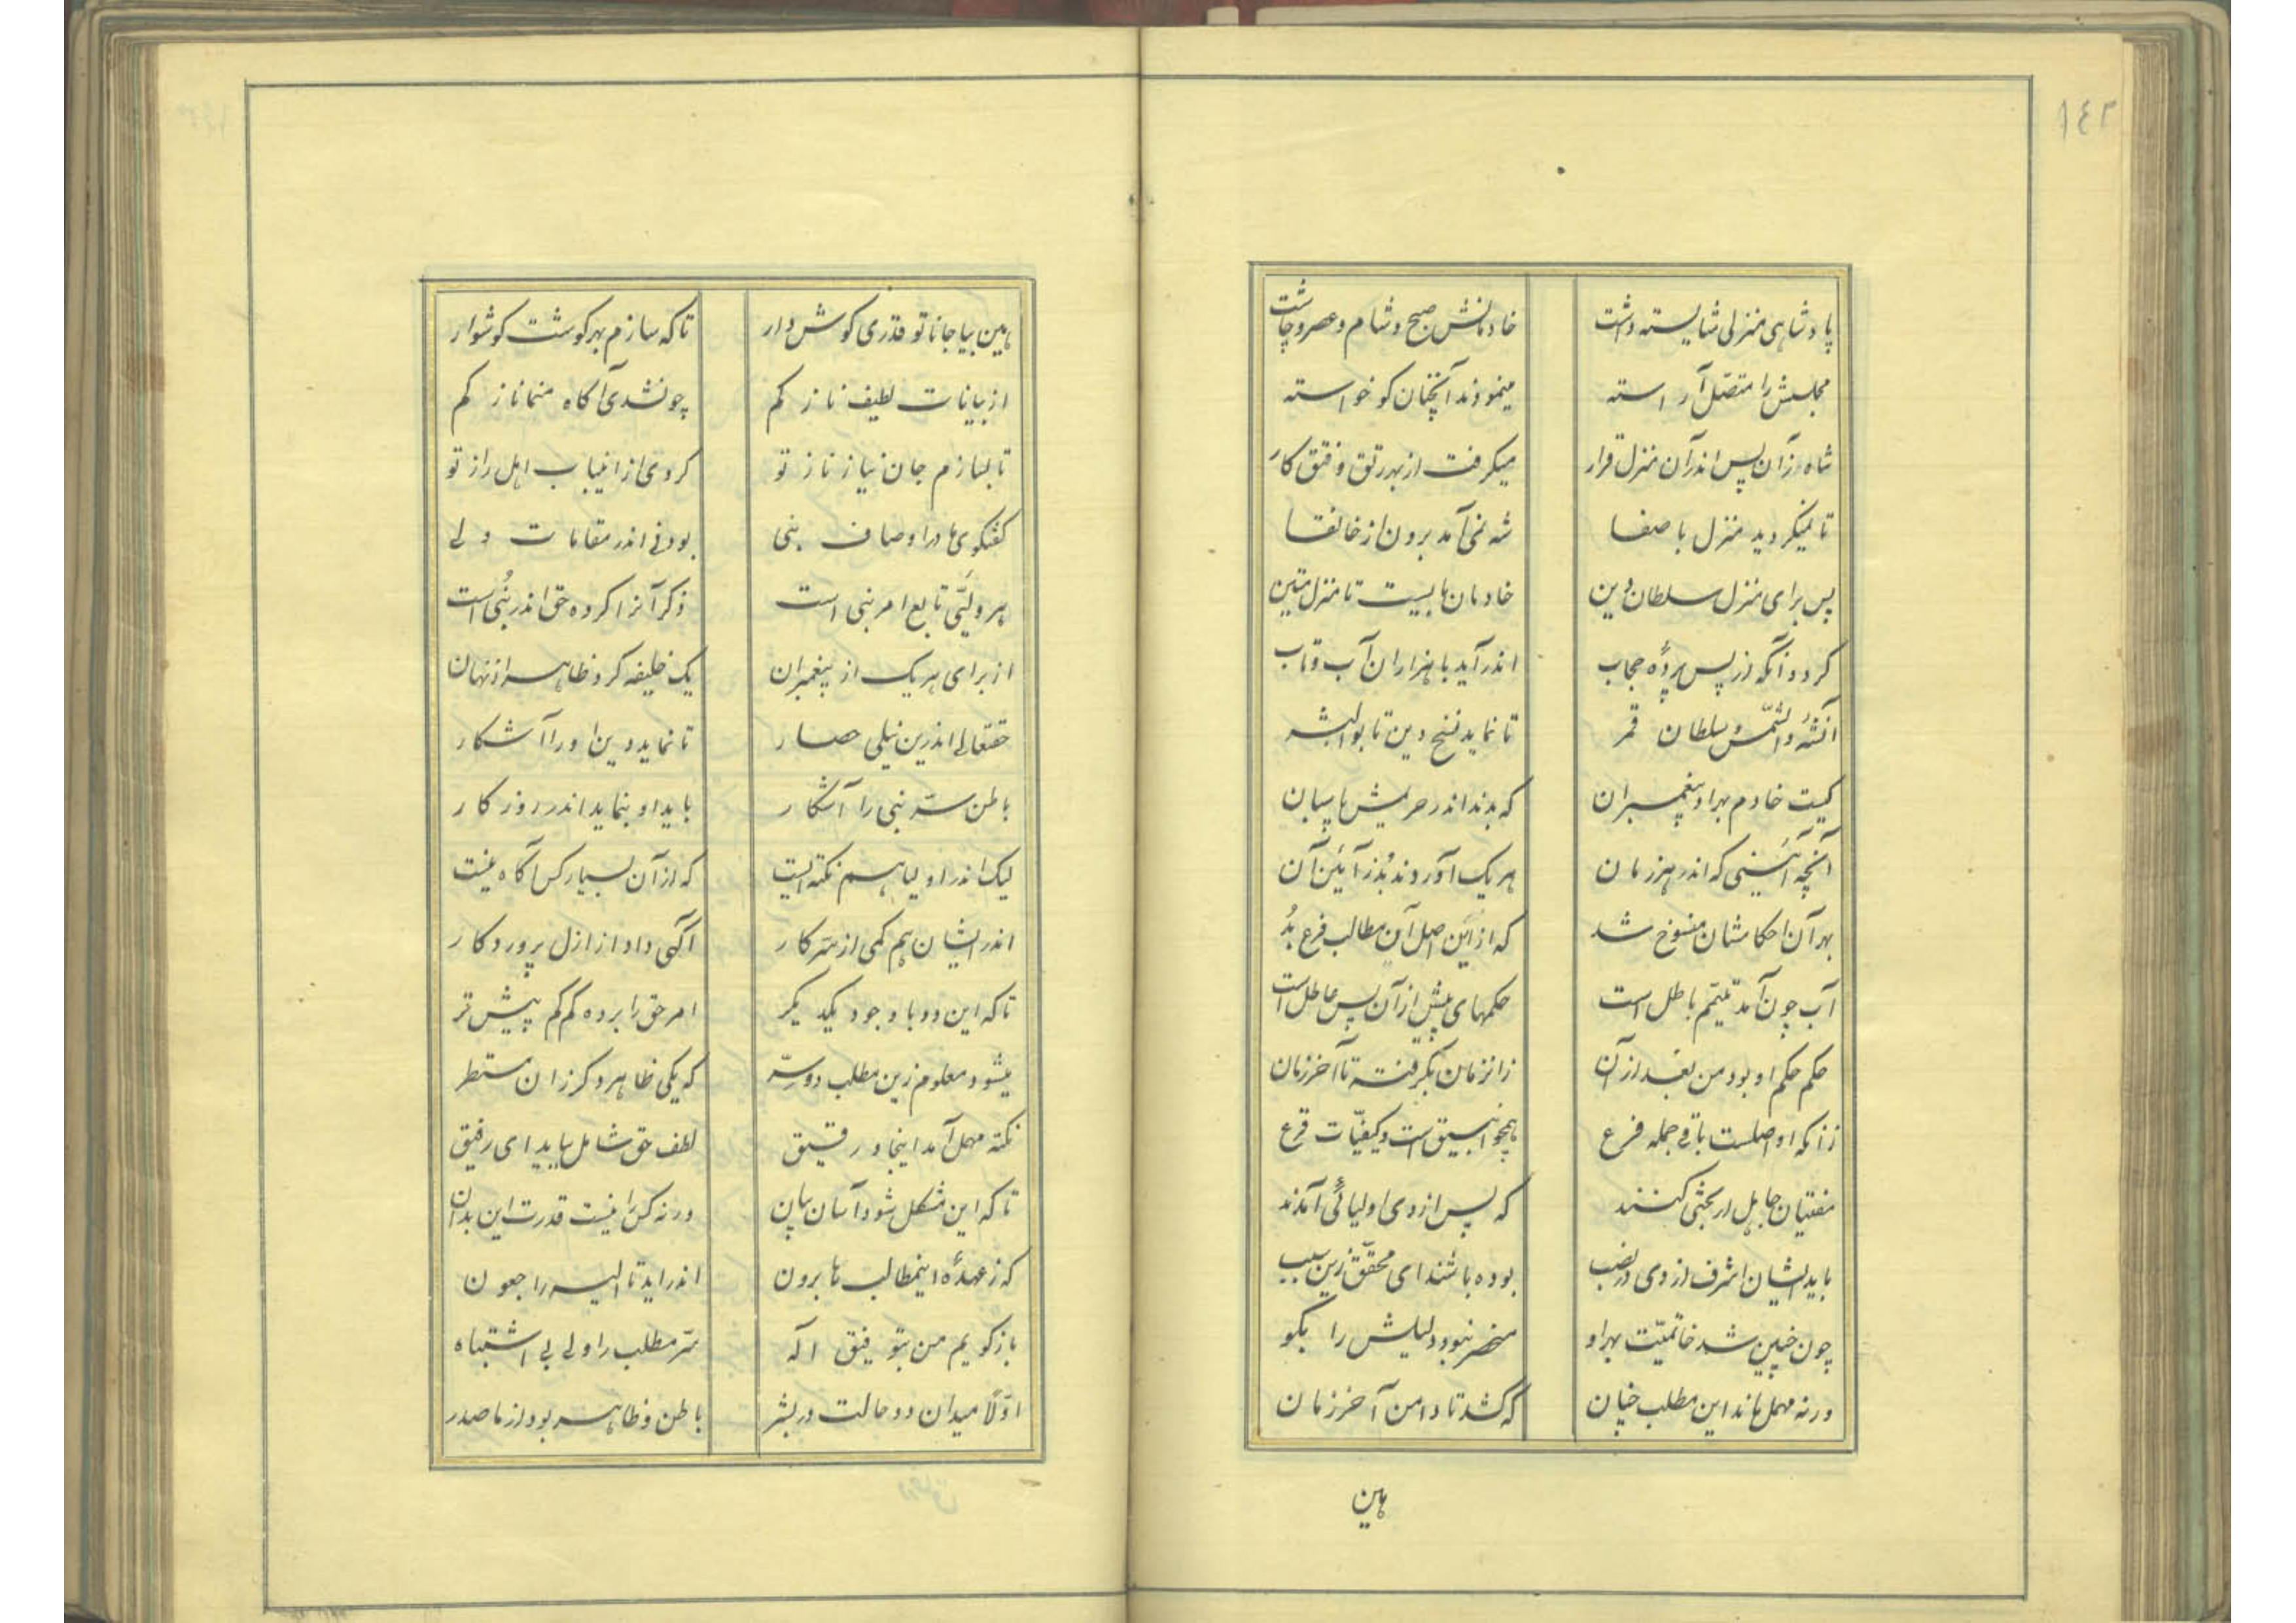 ١٤٢
پادشاهی منزلی شایسته داشت خادمانش صبح و شام و عصر و چاشت
مجلسش را متصّل آراسته مینمودند آنچنان کو خواسته
شاه ازآن پس اندرآن منزل قرار میکرفت از بهر رتق و فتق کار
تا نمیکردید منزل با صفا شه نمی‌آمد برون از خانقا
پس برای منزل سلطان دین خادمان بایست تا منزل متین
کردد آنکه از پس پردهٔ حجاب اندرآید با هزاران آب و تاب
آنشه والشّمس سلطان قمر تا نماید فتح دین تا بوالبشر
کیست خادم بهر او پیغمبران که بدند اندر حریمش پاسبان
آنچه آئینی که اندر هر زمان هر یک آوردند بُد زآئین آن
بهر آن احکامشان منسوخ شد که ازین اصل آن مطالب فرع بُد
آب چون آمد تیمّم باطل است حکمهای پیش ازآن پس عاطل است
حکم حکم او بود من بعد ازآن زانزمان بگرفته تا آخر زمان
زانکه او اصلست باقی جمله فرع همچو انبیق است و کیفیّات قرع
مفتیان جاهل ار بحثی کنند که پس از وی اولیائی آمدند
باید ایشان اشرف از وی در نصب بوده باشند ای محقّق زین سبب
چون چنین شد خاتمیّت بهر او منحصر نبود دلیلش را بکو
ورنه مهمل ماند این مطلب چنان که کشد تا دامن آخر زمان
هاین
هاین بیا جانا تو قدری کوش دار تا که سازم بهر کوشت کوشوار
از بیانات لطیف ناز کم چونشدی آکاه منما ناز کم
تا بسازم جان نیاز ناز تو کردی از انیاب اهل راز تو
کفتکوی ما در اوصاف نبی بود فی اندر مقامات ولی
هر ولّیی تابع امر نبی است ذکر آنرا کرده حق اندر نُبی است
از برای هر یک از پیغمبران یک خلیفه کرد ظاهر از نهان
حقتعالی اندرین نیلی حصار تا نماید دین او را آشکار
باطن سرّ نبی را آشکار باید او بنماید اندر روزکار
لیک اندر اولیا هم نکته‌ایست که ازآن بسیار کس آکاه نیست
اندر ایشان هم کمی از سرّ کار آکهی داد از ازل پروردکار
تا که این دو با وجود یکدیکر امر حق را برده کم کم پیش‌تر
میشود معلوم زین مطلب دو سرّ که یکی ظاهر دکر زان مستطر
نکته مهل آمد اینجا و رقیق لطف حق شامل بباید ای رفیق
تا که این مشکل شود آسان بیان ورنه کس را نیست قدرت این بدان
که ز عهدهٔ اینمطالب ها برون اندر اید تا الیه راجعون
بازکویم من بتوفیق اله سرّ مطلب را ولی بی اشتباه
اوّلاً میدان دو حالت در بشر باطن و ظاهر بود از ما صدر